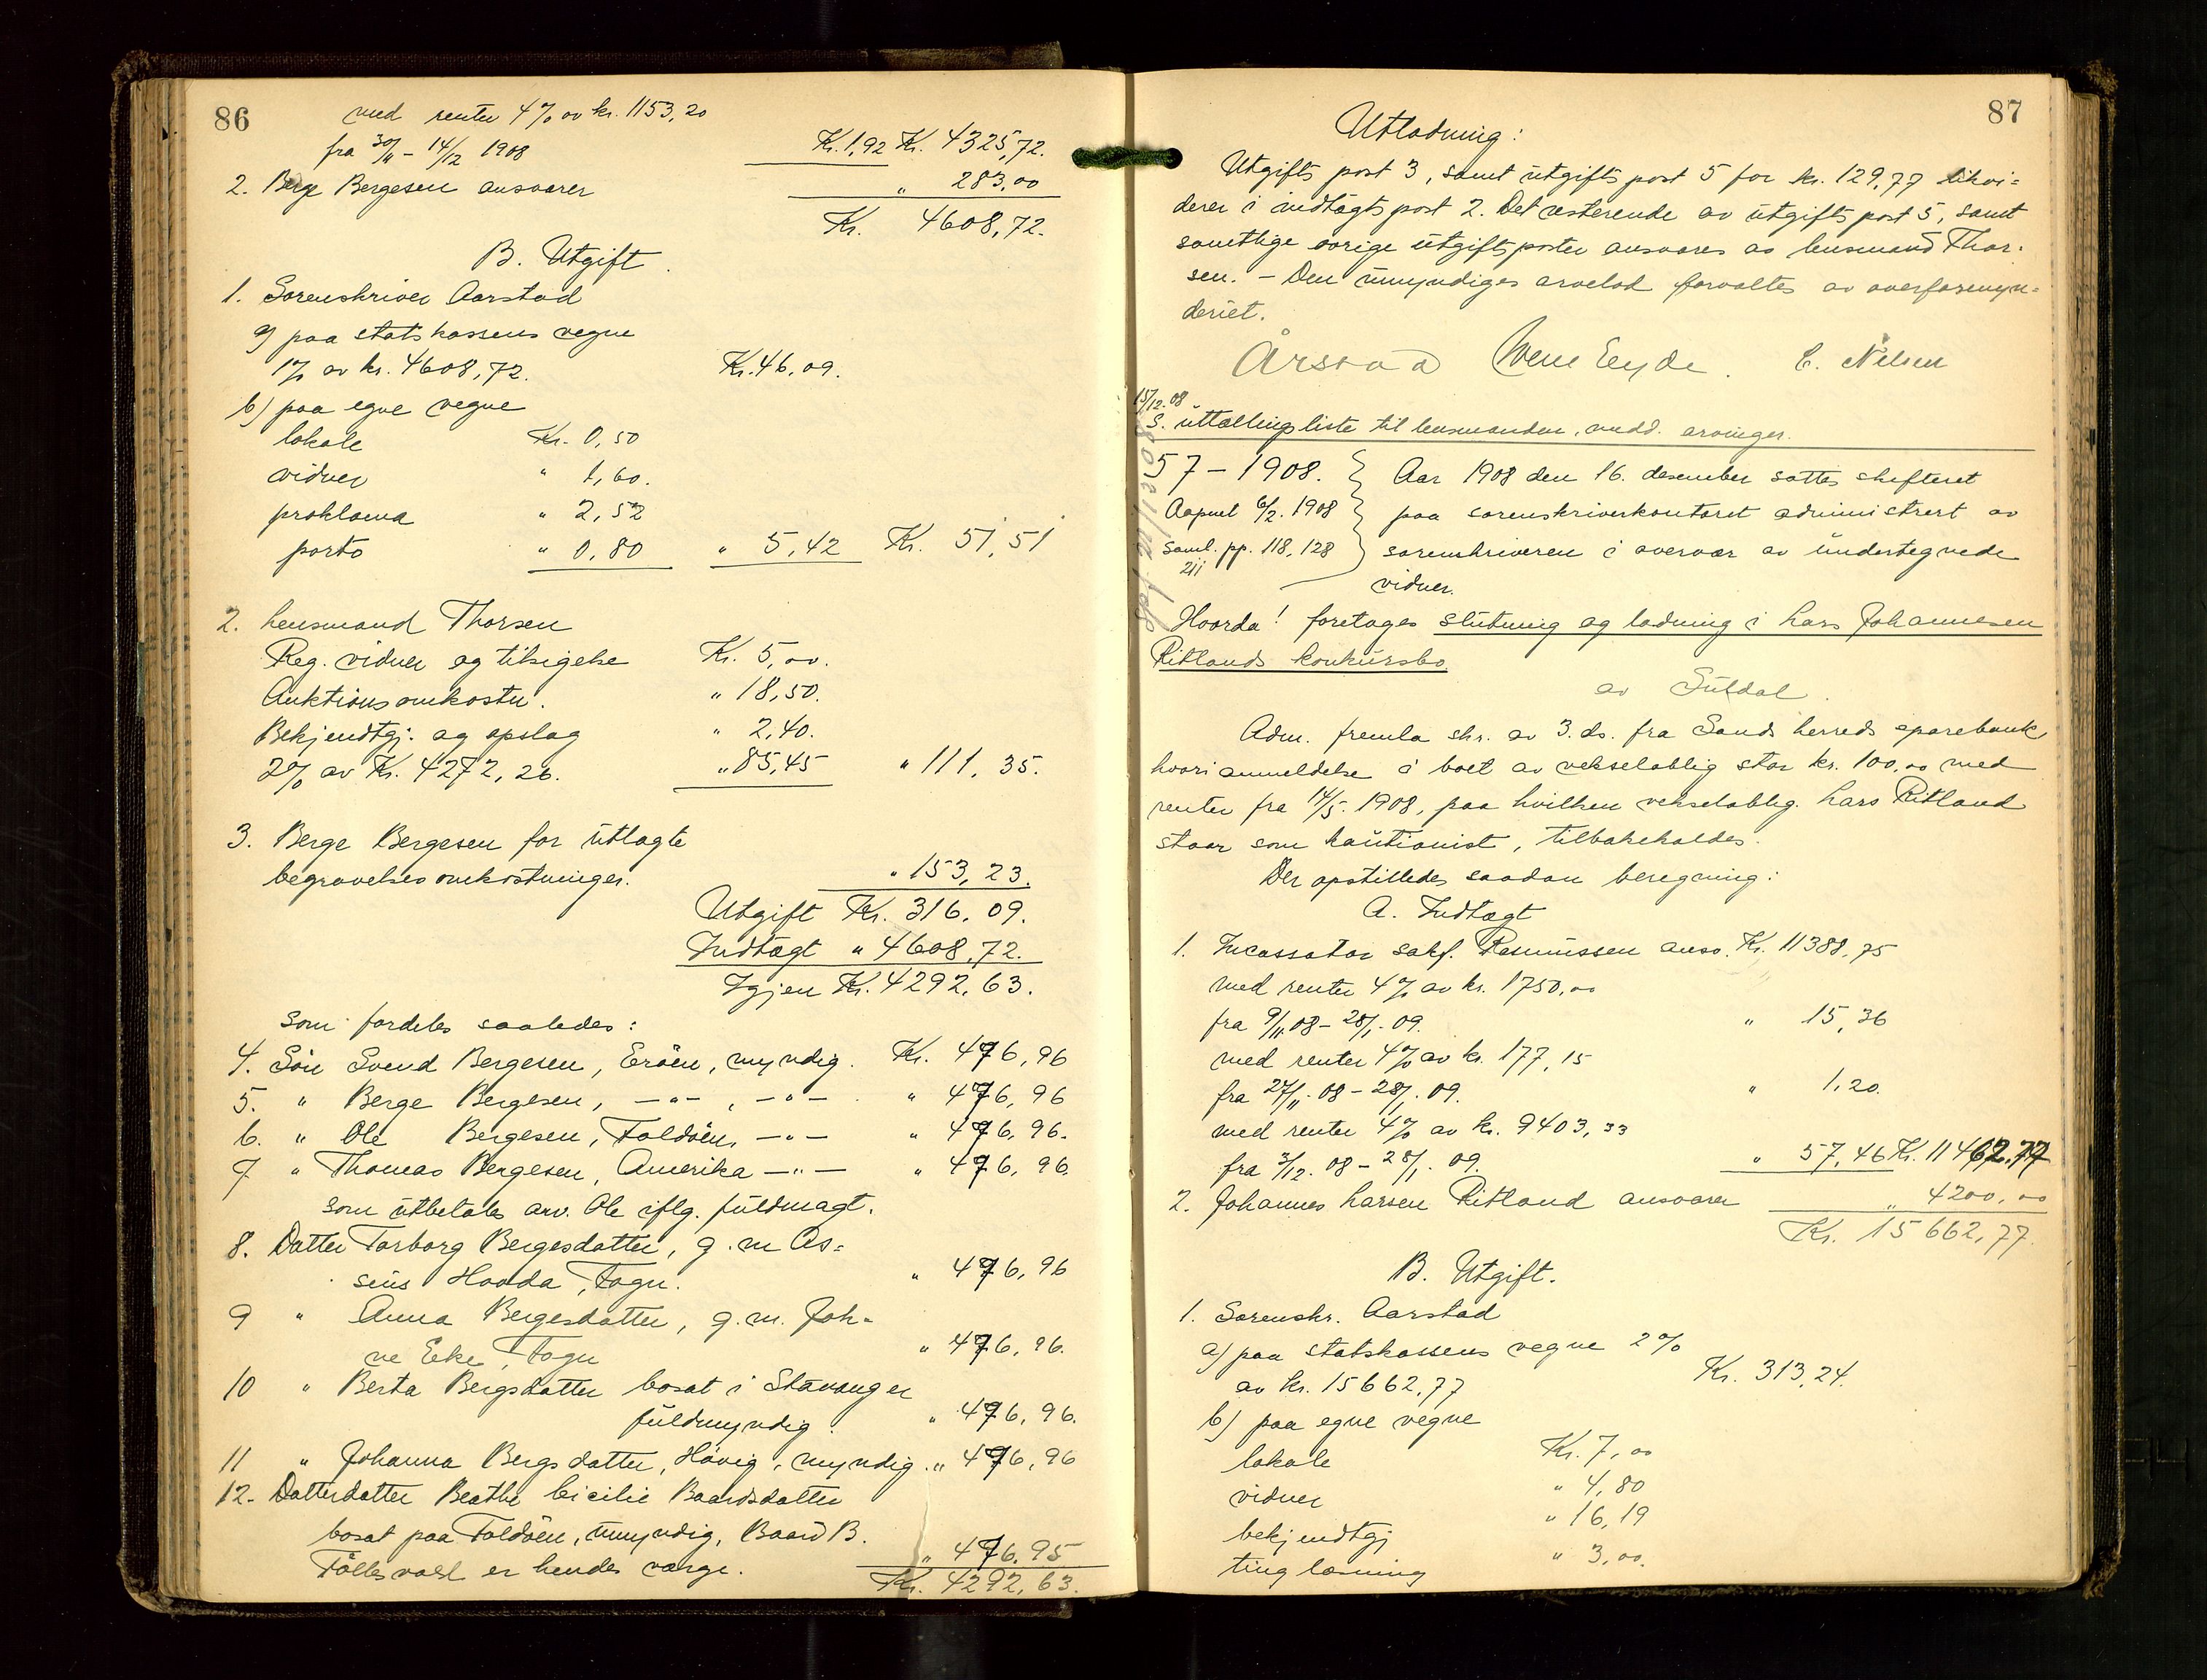 86
med renter 4% av kr. 1153,20
fra 30/11 - 14/12 1908 Kr. 1,92 Kr. 4325,72.
2. Berge Bergesen ansvarer " 283,00
Kr. 4608,72.
B. Utgift.
1. Sorenskriver Aarstad
a) paa statskassens vegne
1% av kr. 4608,72. Kr. 46,09.
b) paa egne vegne
lokale Kr. 0,50
vidner " 1,60.
proklama " 2,52
porto " 0,80 " 5,42 Kr. 51,51
2. Lensmand Thorsen
Reg. vidner og tilsigelse Kr. 5,00.
Auktionsomkostn. " 18,50.
Bekjendtgj. og opslag " 2,40.
2% av Kr. 4272,26. " 85,45 " 111,35.
3. Berge Bergesen for utlagte
begravelsesomkostninger. " 153,23.
Utgift Kr. 316,09.
Indtægt " 4608,72.
Igjen Kr. 4292,63.
som fordeles saaledes:
4. Søn Svend Bergesen, Erøen, myndig. Kr. 476,96
5. " Berge Bergesen, —"— , —"— . " 476,96
6. " Ole Bergesen, Foldøen, —"— " 476,96.
7 " Thomas Bergesen, Amerika —"— " 476,96.
som utbetales arv. Ole iflg. fuldmagt.
8. Datter Torborg Bergesdatter, g. m. As-
seus Haada, Fogn. " 476,96
9 " Anna Bergesdatter, g. m. Joh-
ne Eike, Fogn " 476,96.
10 " Berta Bergsdatter bosat i Stavanger
fuldmyndig. " 476,96.
11 " Johanna Bergsdatter, Høvig, myndig. " 476,96
12. Datterdatter Beathe Cicilie Baardsdatter
bosat paa Foldøen, umyndig, Baard B.
Føllesvold er hendes værge. " 476,95
Kr. 4292,63.
87
Utlodning:
Utgifts post 3, samt utgifts post 5 for kr. 129,77 likvi-
derer i indtægts post 2. Det resterende av utgifts post 5, samt
samtlige øvrige utgiftsposter ansvares av lensmand Thor-
sen. - Den umyndiges arvelod forvaltes av overformyn-
deriet.
Årstad Eeyde. C. Nilsen
15/12.08.
S. uttællingsliste til lensmanden, medd. arvinger.
57 - 1908. Aar 1908 den 16. desember sattes skifteret
Aapnet 6/2. 1908 paa sorenskriverkontoret administrert av
Saml. pp. 118, 128 sorenskriveren i overvær av undertegnede
211
vidner.
Hvorda! foretages slutning og lodning i Lars Johannesen
Ritlands konkursbo
av Suldal.
Adm. fremla skr. av 3. ds. fra Sands herreds sparebank,
hvori anmeldelse i boet av vekseloblig stor kr. 100,00 med
renter fra 14/5. 1908, paa hvilken vekseloblig. Lars Ritland
staar som kautionist, tilbakeholdes.
Der opstilledes saadan beregning:
A. Indtægt
1. Incassator sakf. Rasmussen ansv. Kr. 11388,75
med renter 4% av kr. 1750,00
fra 9/11 08 - 28/1. 09. " 15,36
med renter 4% av kr. 177,15
fra 27/11. 08 - 28/1. 09. " 1,20.
med renter 4% av kr. 9403,33
fra 3/12. 08 - 28/1. 09. " 57,46 Kr. 11462,77
2. Johannes Larsen Ritland ansvarer " 4200,00
Kr. 15662,77.
B. Utgift.
1. Sorenskr. Aarstad
a) paa statskassens vegne 2%
av kr. 15662,77 Kr. 313,24.
b) paa egne vegne
lokale Kr. 7,00
vidner " 4,80
bekjendtgj " 16,19
ting læsning " 3,00.